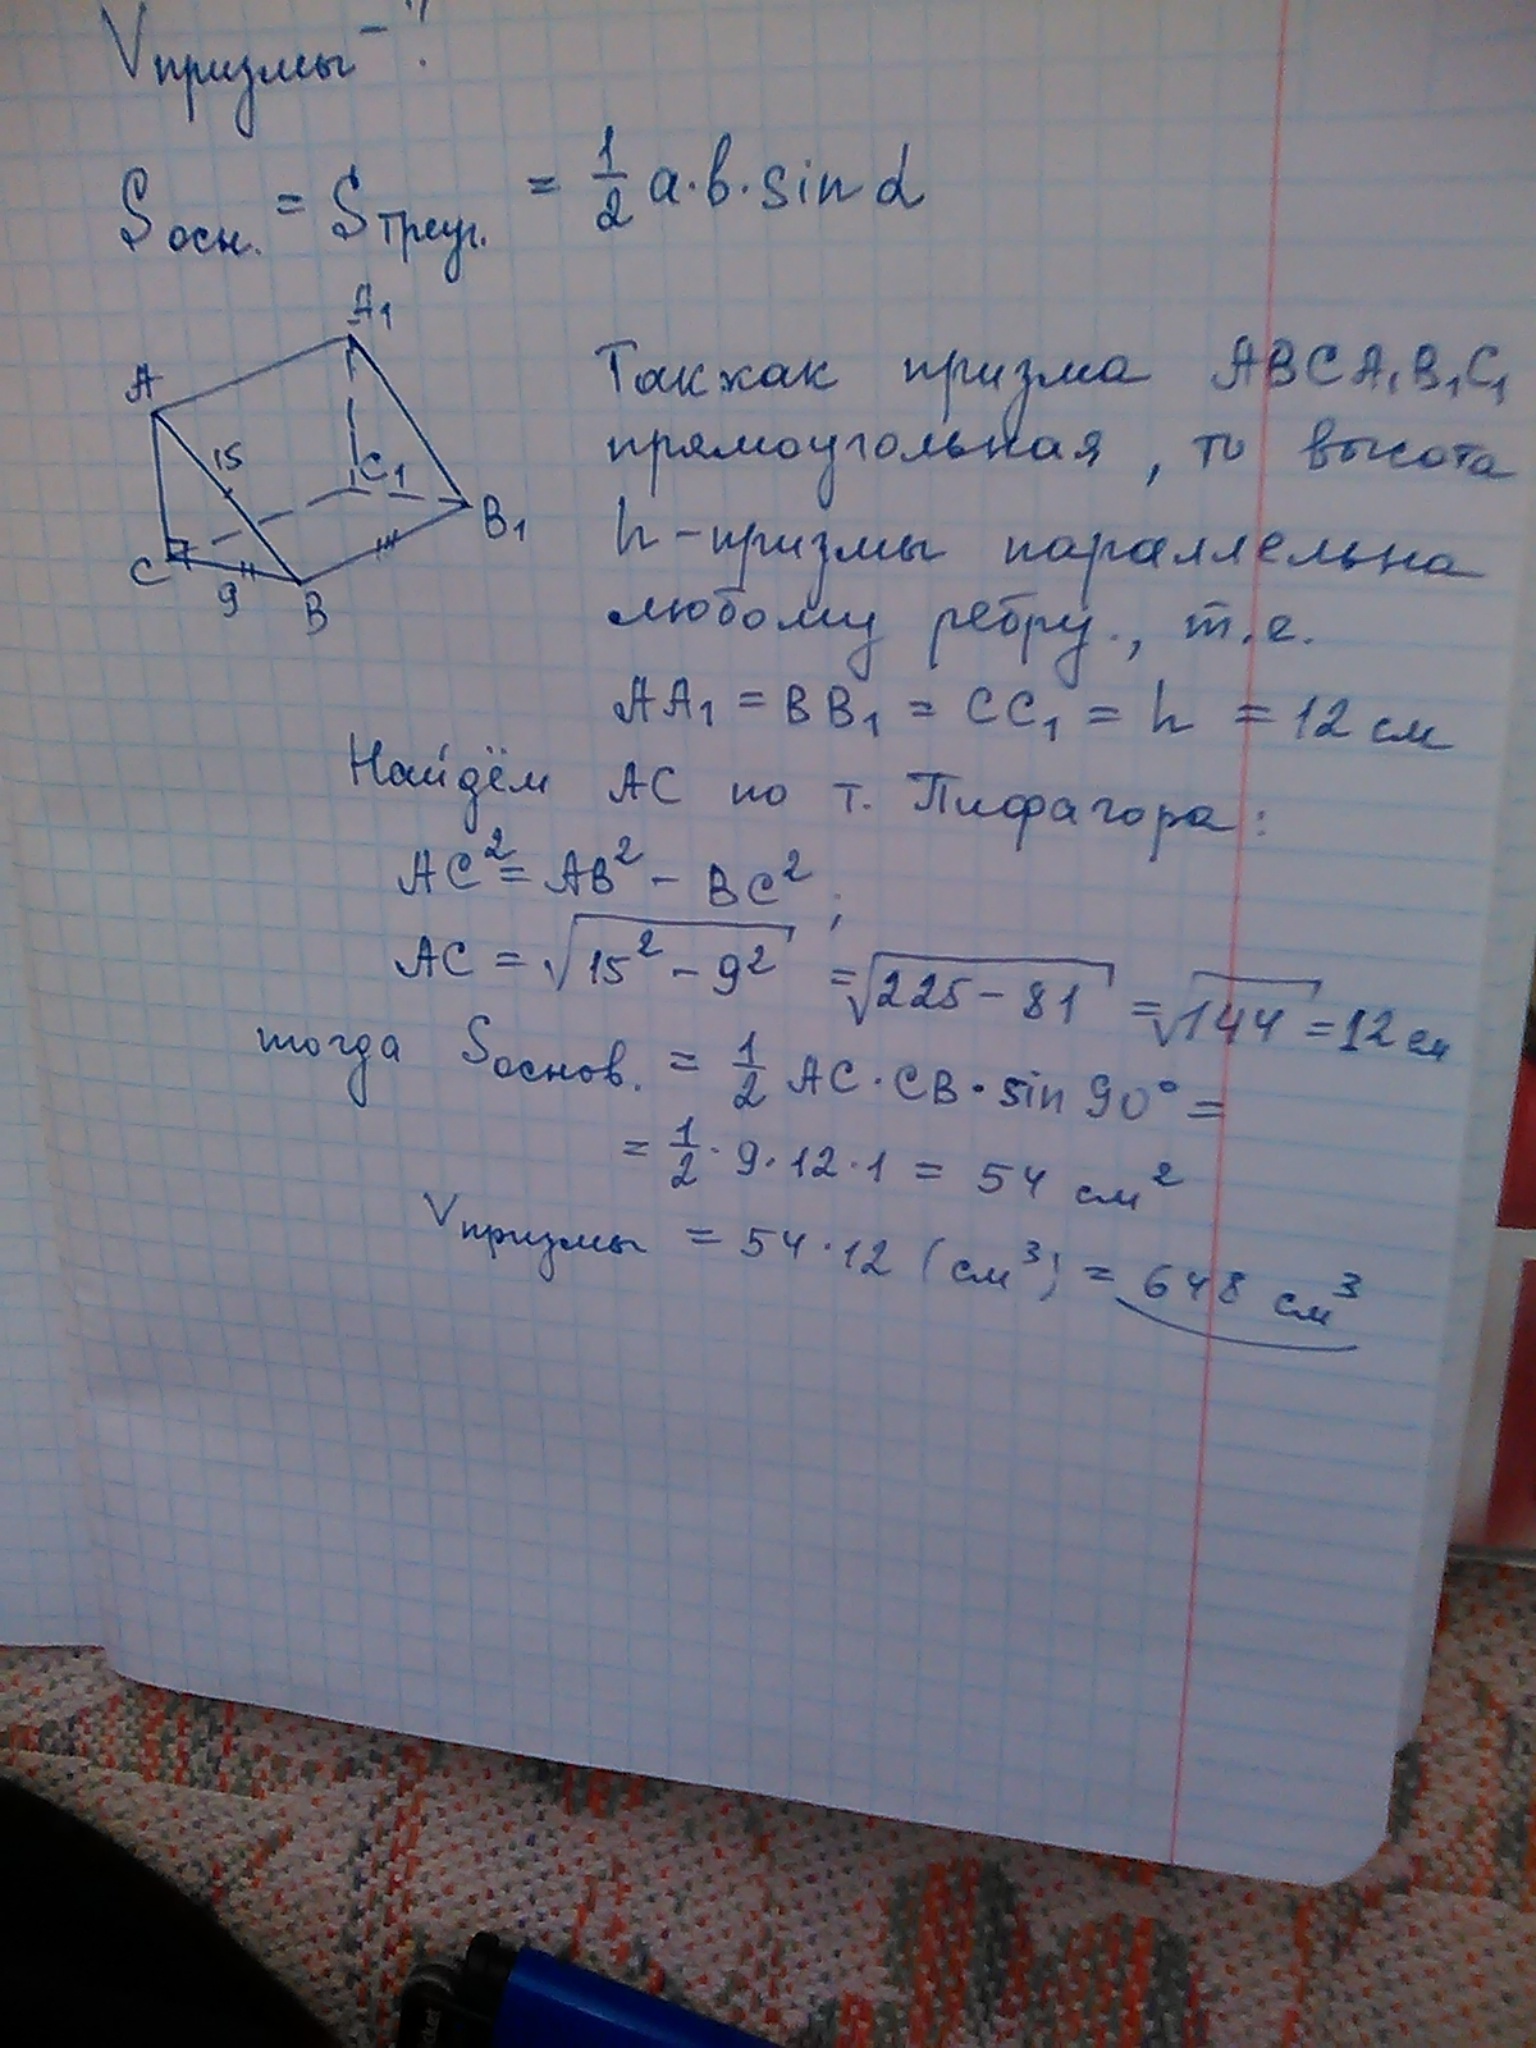 Vпризмы - ?
Sосн. = Sтреуг. = 1/2 a·b·sin α
A1
A
15
C1
B1
C
9
B
Так как призма ABCA1B1C1
прямоугольная, то высота
h - призмы параллельна
любому ребру., т.е.
AA1 = BB1 = CC1 = h = 12 см
Найдём AC по т. Пифагора:
AC² = AB² - BC²;
AC = √15² - 9² = √225 - 81 = √144 = 12 см
тогда Sоснов. = 1/2 AC · CB · sin 90° =
= 1/2 · 9 · 12 · 1 = 54 см²
Vпризмы = 54 · 12 (см³) = 648 см³